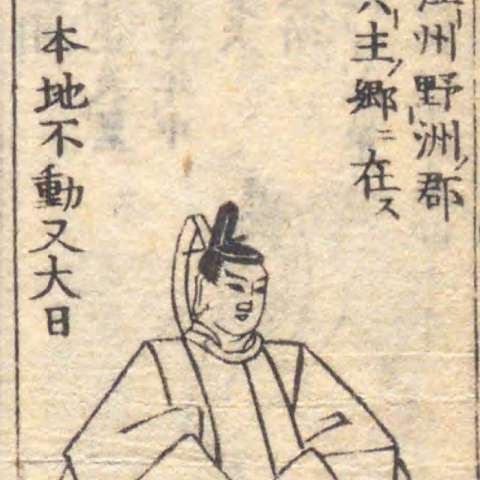 州野洲郡
主ノ郷ニ在ス
本地不動又大日